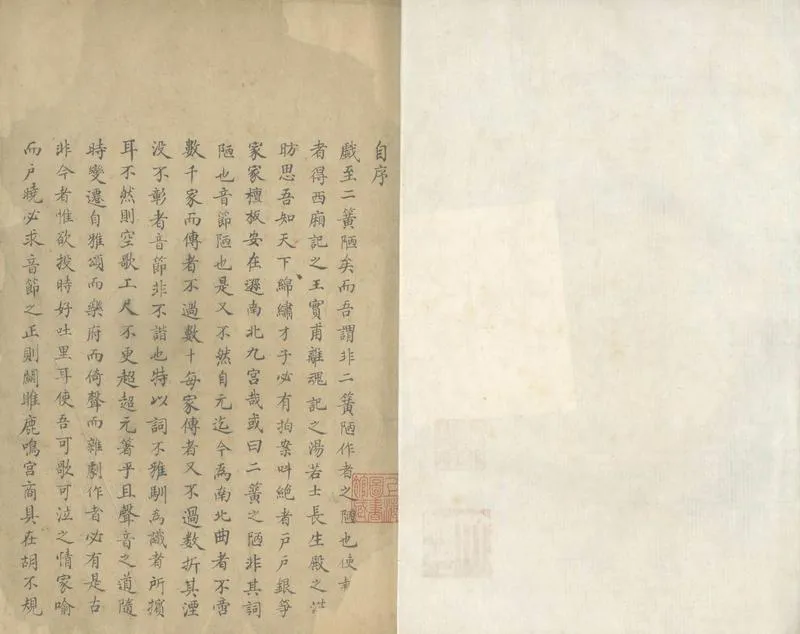 自序
戲至二簧陋矣而吾謂非二簧陋作者之陋也使
者得西廂記之王實甫離魂記之湯若士長生殿之洪
昉思吾知天下綿繡才子必有拍案呌絶者戸戸銀箏
家家檀板安在遜南北九宮哉或曰二簧之陋非其詞
陋也音節陋也是又不然自元迄今為南北曲者不啻
數千家而傳者不過數十每家傳者又不過數折其湮
没不彰者音節非不諧也特以詞不雅馴為識者所擯
耳不然則空歌工尺不更超超元著乎且聲音之道隨
時變遷自雅頌而樂府而倚聲而雜劇作者必有是古
非今者惟欲投時好吐里耳使吾可歌可泣之情家喻
而戸曉必求音節之正則關雎鹿鳴宮商具在胡不規